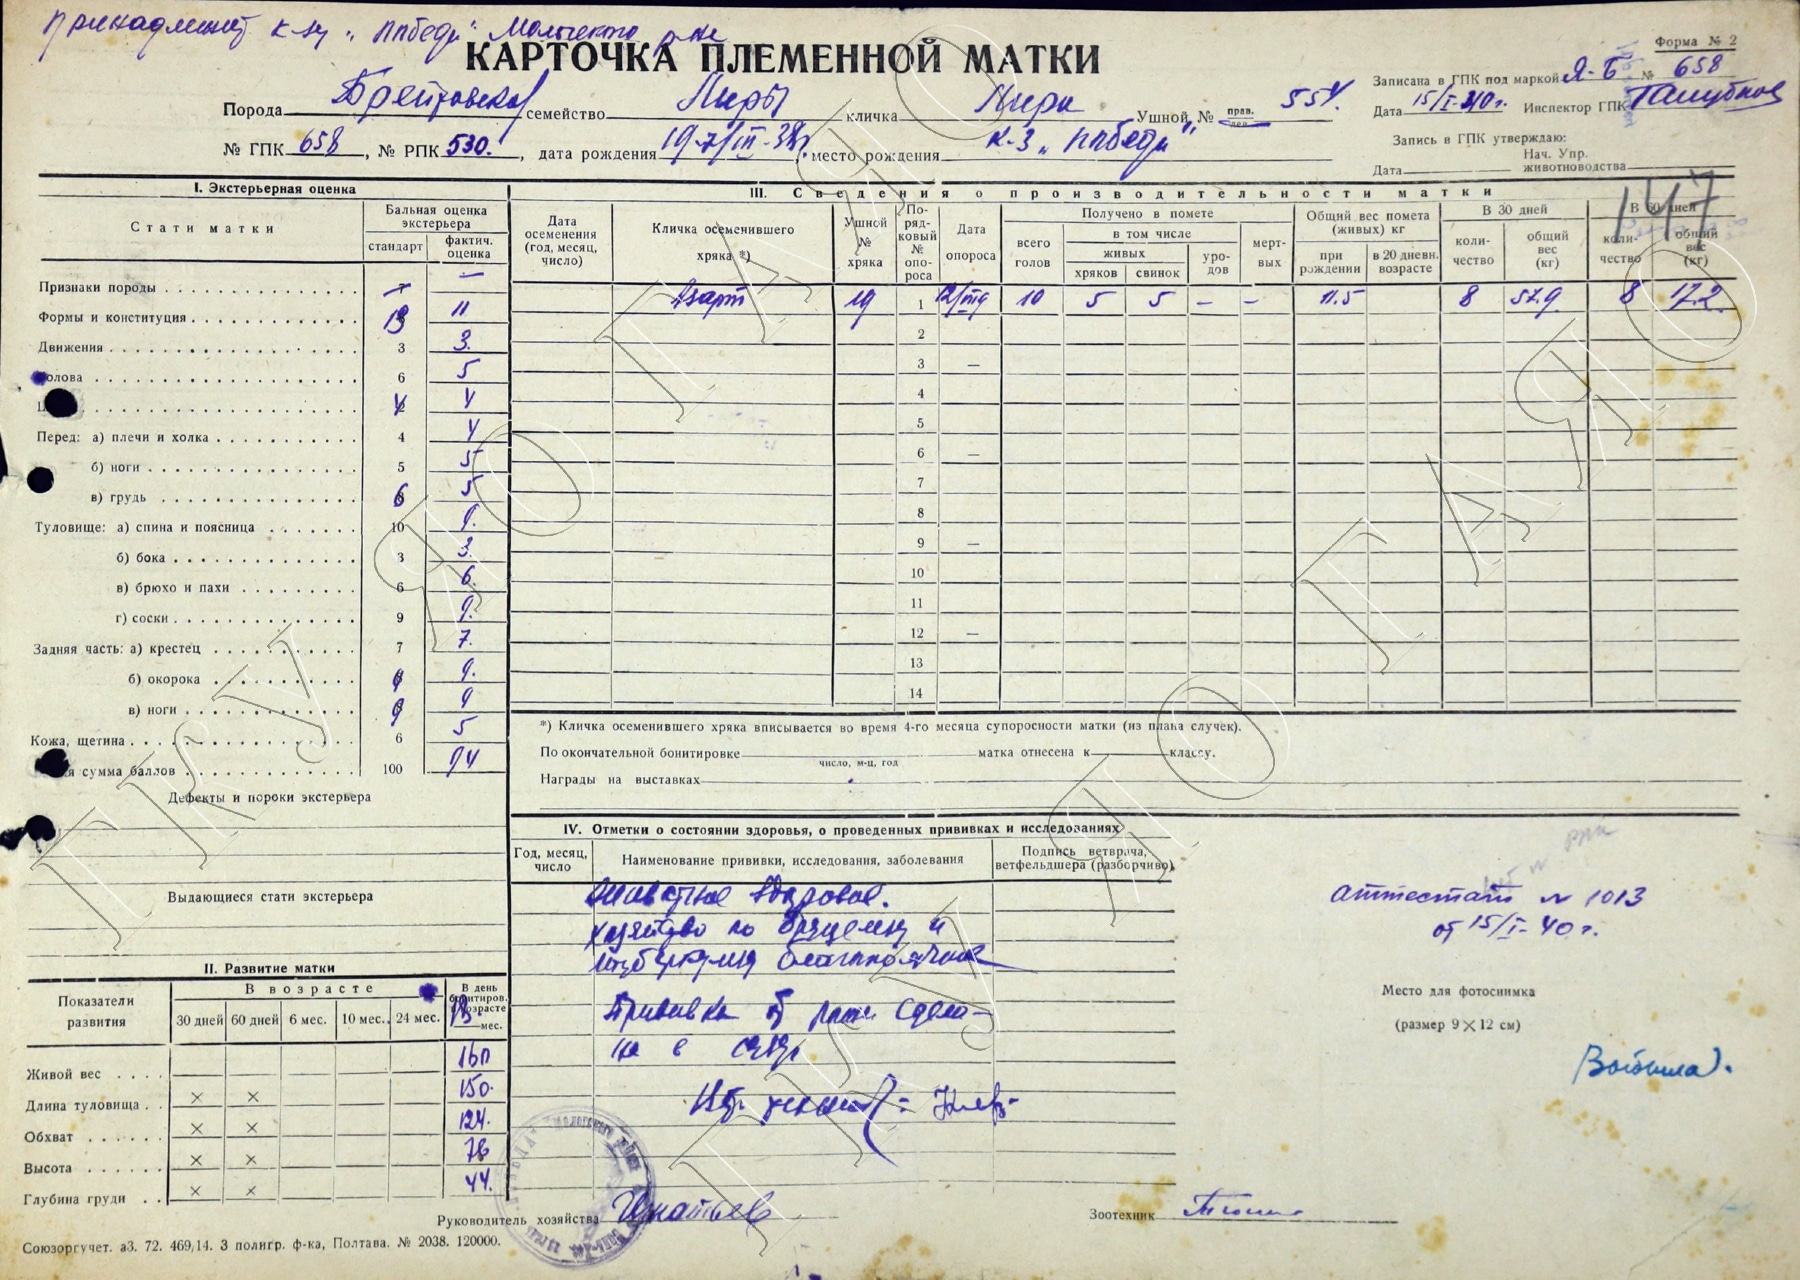 к-зу „Победа“
КАРТОЧКА ПЛЕМЕННОЙ МАТКИ
Форма № 2
Записана в ГПК под маркой Я-Б № 658
Дата 15/I-40 г. Инспектор ГПК
Порода Брейтовская семейство Лиры кличка Лира Ушной № прав. лев. 554.
№ ГПК 658, № РПК 530., дата рождения место рождения к-з „Победа“
Запись в ГПК утверждаю:
Дата Нач. Упр. животноводства
147
I. Экстерьерная оценка
Стати матки
Бальная оценка экстерьера
стандарт
фактич. оценка
Признаки породы —
Формы и конституция 11
Движения 3 3.
Голова 6 5
4 4
Перед: а) плечи и холка 4 4
б) ноги 5 5
в) грудь 6 5
Туловище: а) спина и поясница 10 9.
б) бока 3 3.
в) брюхо и пахи 6 6.
г) соски 9 9.
Задняя часть: а) крестец 7 7.
б) окорока 9 9.
в) ноги 9 9
Кожа, щетина 6 5
сумма баллов 100 94
Дефекты и пороки экстерьера
Выдающиеся стати экстерьера
II. Развитие матки
Показатели развития
В возрасте
30 дней 60 дней 6 мес. 10 мес. 24 мес.
В день бонитиров. в возрасте мес.
Живой вес 160
Длина туловища × × 150.
Обхват × × 124.
Высота × × 78
Глубина груди × × 44.
III. Сведения о производительности матки
Дата осеменения (год, месяц, число)
Кличка осеменившего хряка *)
Ушной № хряка
Порядковый № опороса
Дата опороса
Получено в помете
всего голов
в том числе
живых
хряков свинок
уродов
мертвых
Общий вес помета (живых) кг
при рождении
в 20 дневн. возрасте
В 30 дней
количество
общий вес (кг)
В 60 дней
количество
общий вес (кг)
Азарт 19 1 10 5 5 — — 11.5 8 57.9 8 172.
2
3 —
4
5
6 —
7
8
9 —
10
11
12 —
13
14
*) Кличка осеменившего хряка вписывается во время 4-го месяца супоросности матки (из плана случек).
По окончательной бонитировке матка отнесена к классу.
число, м-ц, год
Награды на выставках
IV. Отметки о состоянии здоровья, о проведенных прививках и исследованиях
Год, месяц, число
Наименование прививки, исследования, заболевания
Подпись ветврача, ветфельдшера (разборчиво)
Животное здоровое.
хозяйство по бруцелезу и
туберкулезу благополучное
Прививка от рожи сдела-
на в
аттестат № 1013
от 15/I-40 г.
Место для фотоснимка
(размер 9×12 см)
Руководитель хозяйства Игнатьев
Зоотехник
Союзоргучет. аЗ. 72. 469/14. 3 полигр. ф-ка, Полтава. № 2038. 120000.
ГКУ ЯО ГАЯО
ГКУ ЯО ГАЯО